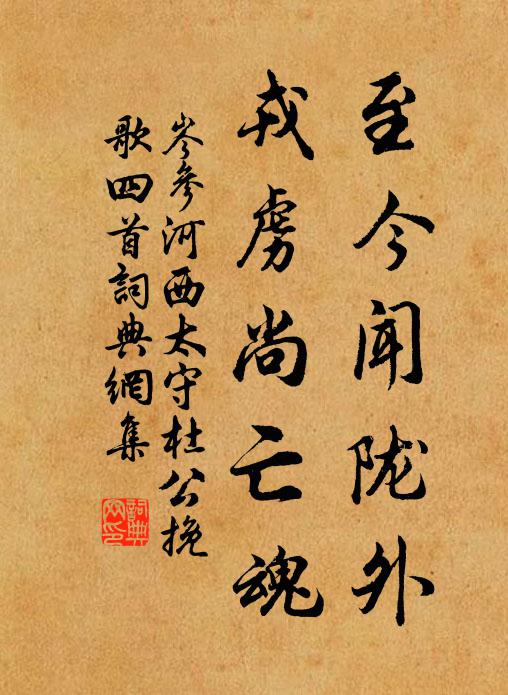 至今闻陇外
戎虏尚亡魂
岑参河西太守杜公挽
歌四首詞典網集
詞典
网印